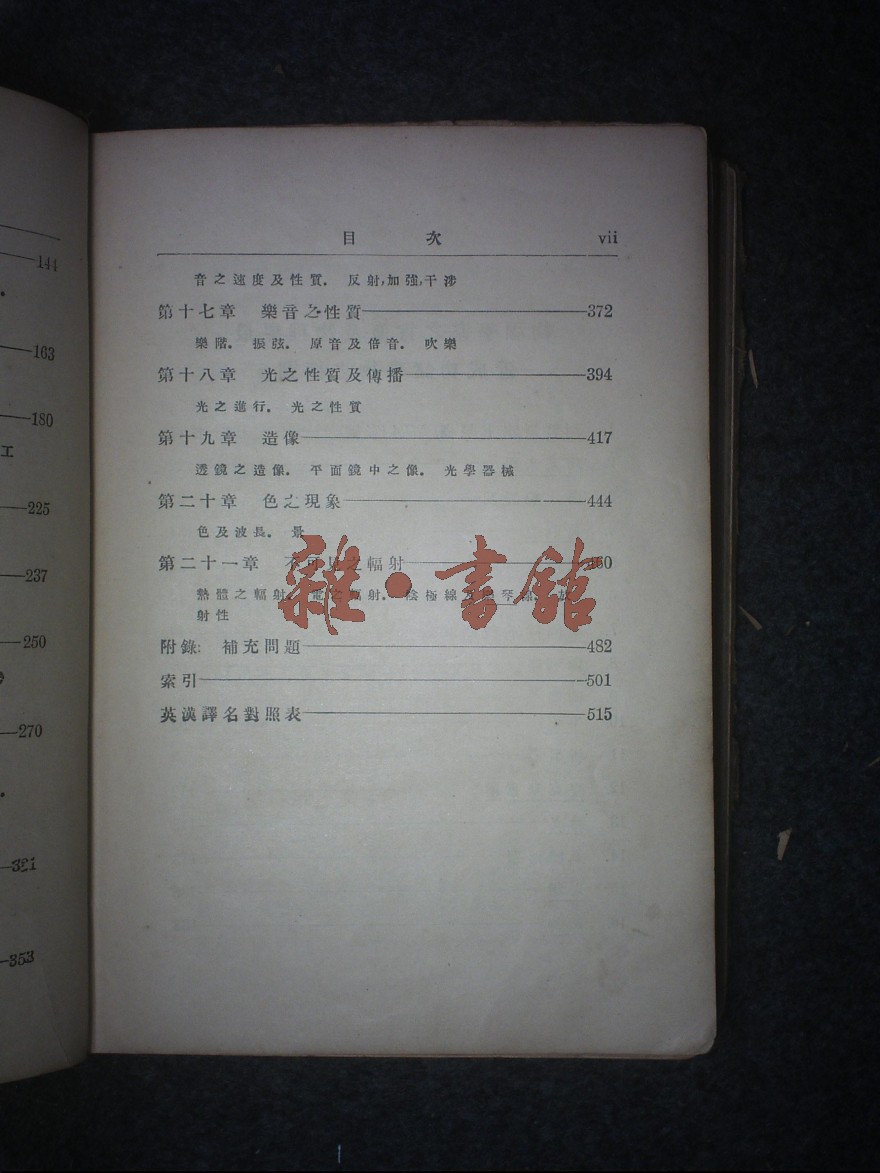 144
163
180
工
225
237
250
270
321
353
目次 vii
音之速度及性質. 反射,加強,干涉
第十七章 樂音之性質 372
樂階. 振弦. 原音及倍音. 吹樂
第十八章 光之性質及傳播 394
光之進行. 光之性質
第十九章 造像 417
透鏡之造像. 平面鏡中之像. 光學器械
第二十章 色之現象 444
色及波長. 景
第二十一章 不可見之輻射 460
熱體之輻射. 電之輻射. 陰極線
射性
附錄: 補充問題 482
索引 501
英漢譯名對照表 515
雜·書館